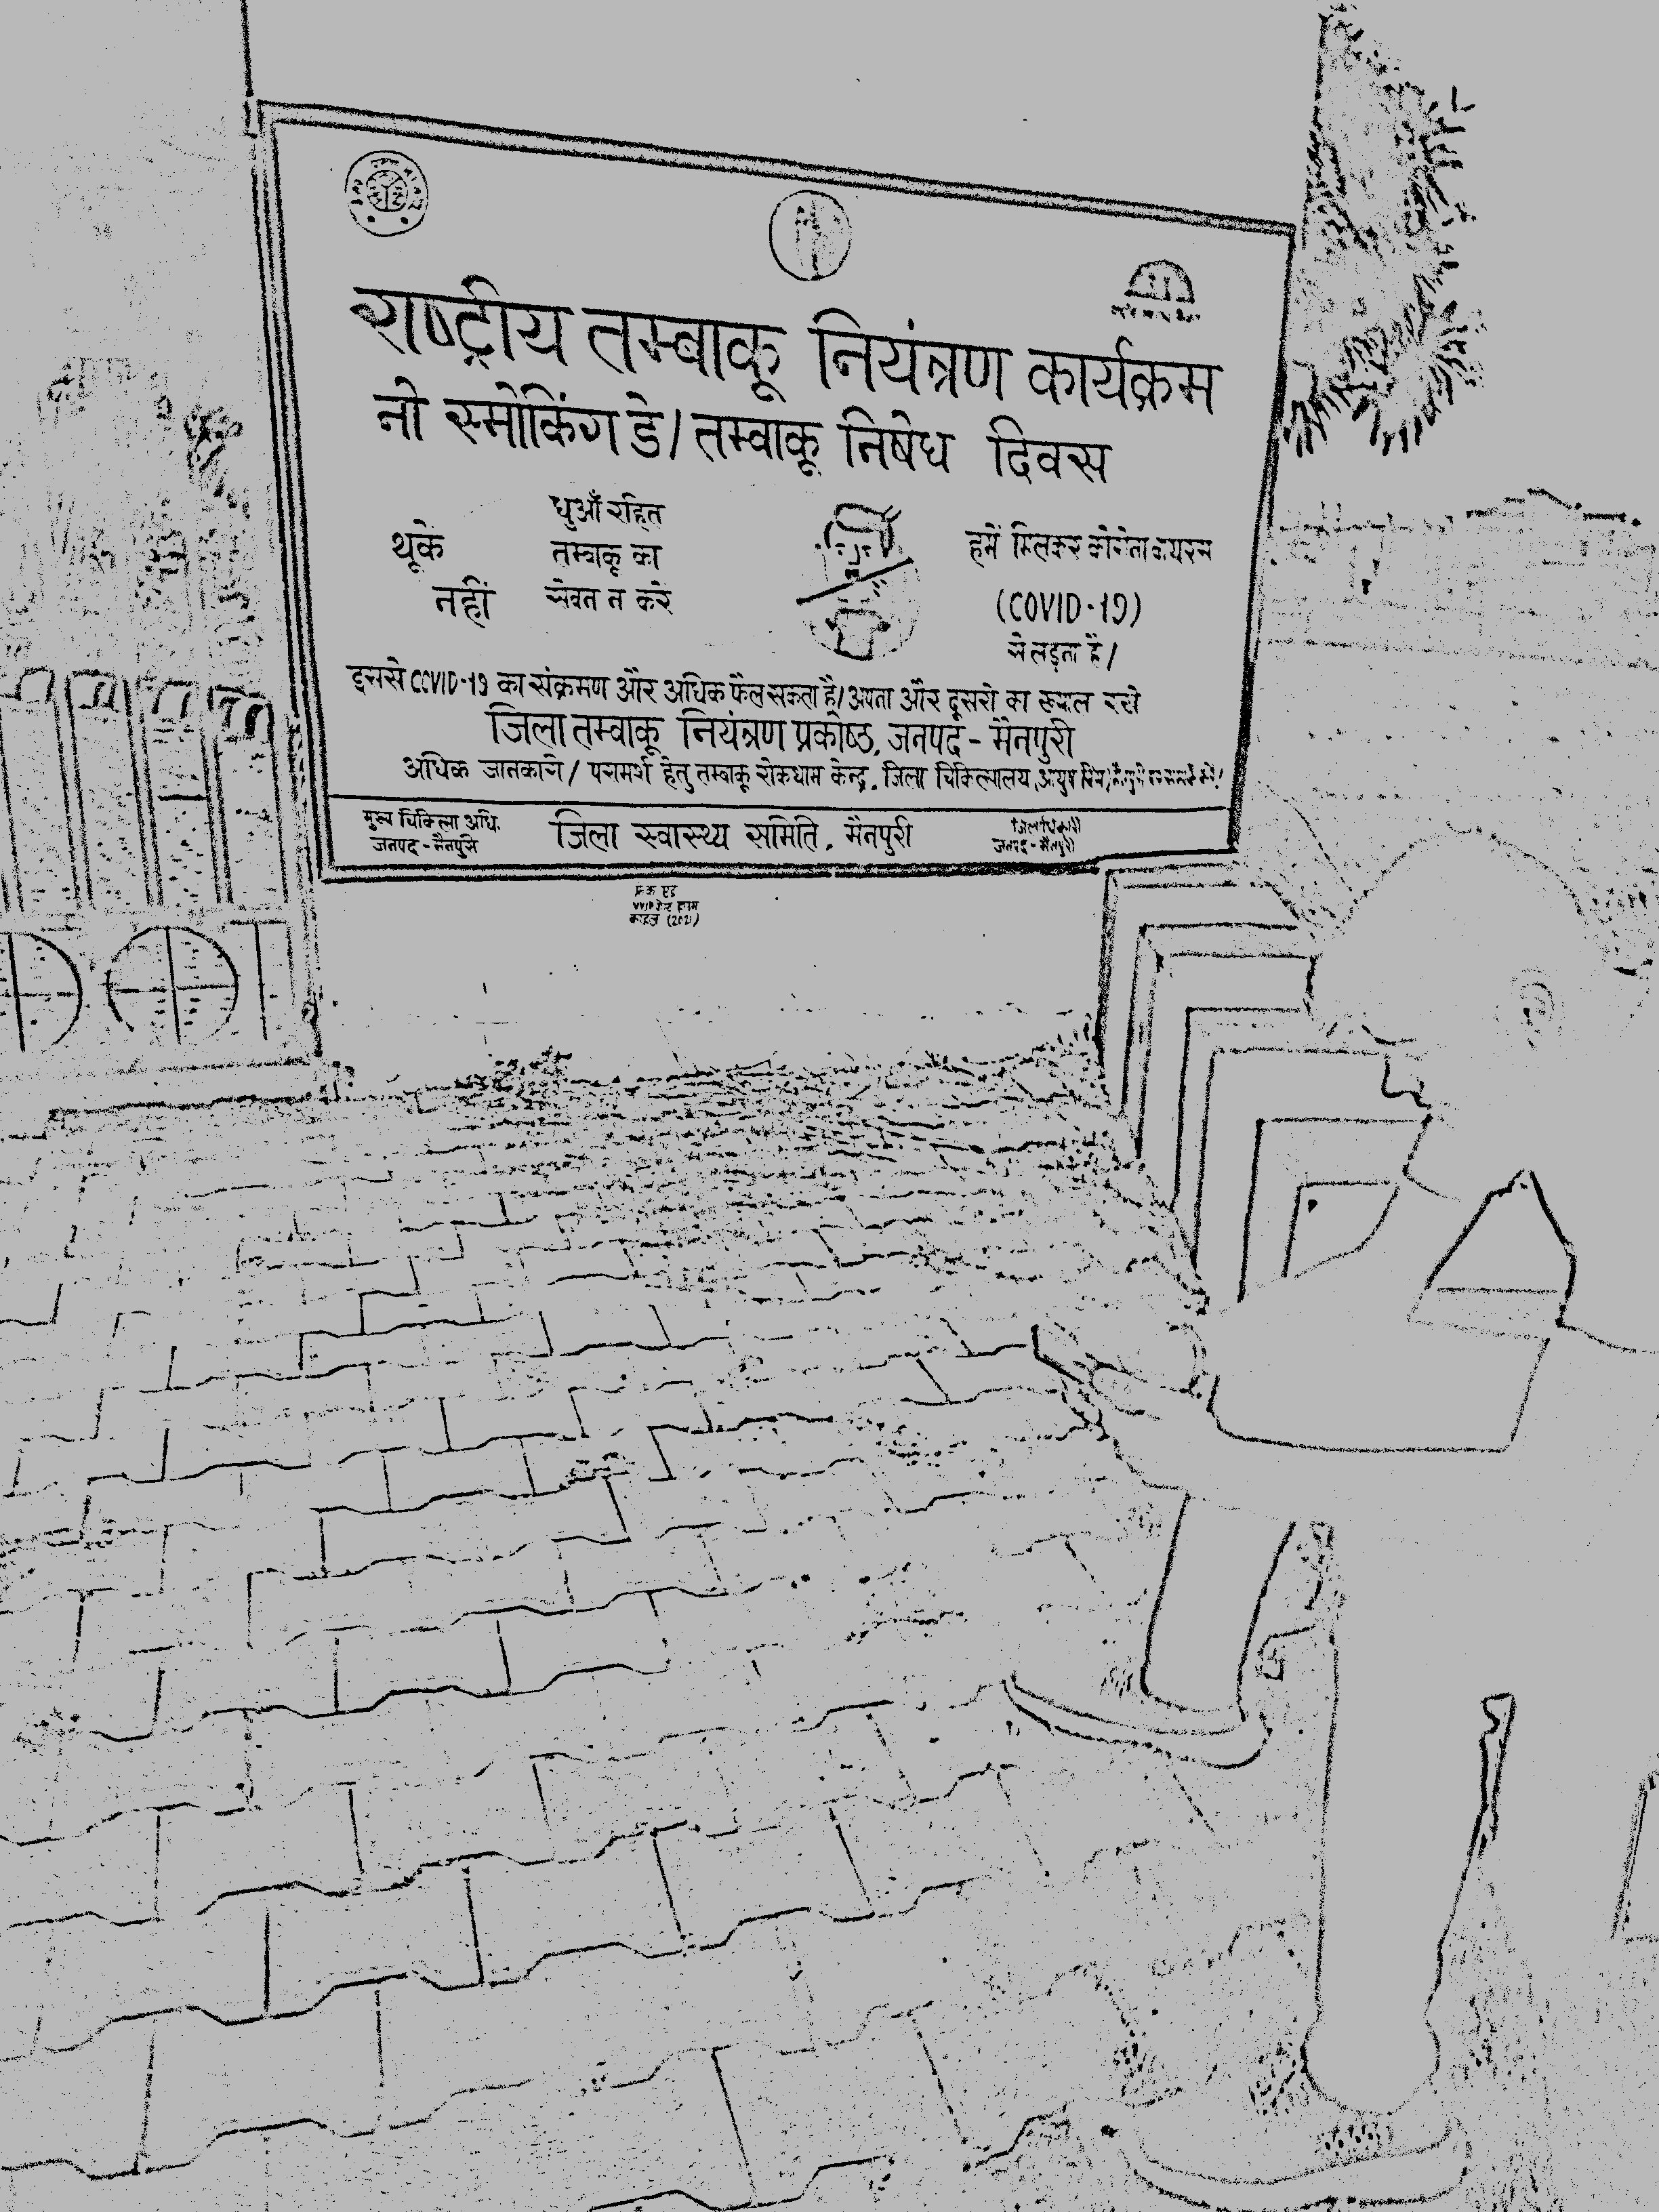 राष्ट्रीय तम्बाकू नियंत्रण कार्यक्रम
नो स्मोकिंग डे/तम्वाकू निषेध दिवस
थूके
नहीं
धुआँ रहित
तम्बाकू का
सेवन न करे
हमें मिलकर कोरोना वायरस
(COVID-19)
से लड़ना है/
इससे COVID-19 का संक्रमण और अधिक फैल सकता है/अपना और दूसरो का ख्याल रखे
जिला तम्वाकू नियंत्रण प्रकोष्ठ, जनपद - मैनपुरी
अधिक जानकारी/ परामर्श हेतु तम्बाकू रोकथाम केन्द्र, जिला चिकित्सालय,
मुख्य चिकित्सा अधि.
जनपद - मैनपुरी
जिला स्वास्थ्य समिति, मैनपुरी
जिलाधिकारी
जनपद - मैनपुरी
(2021)